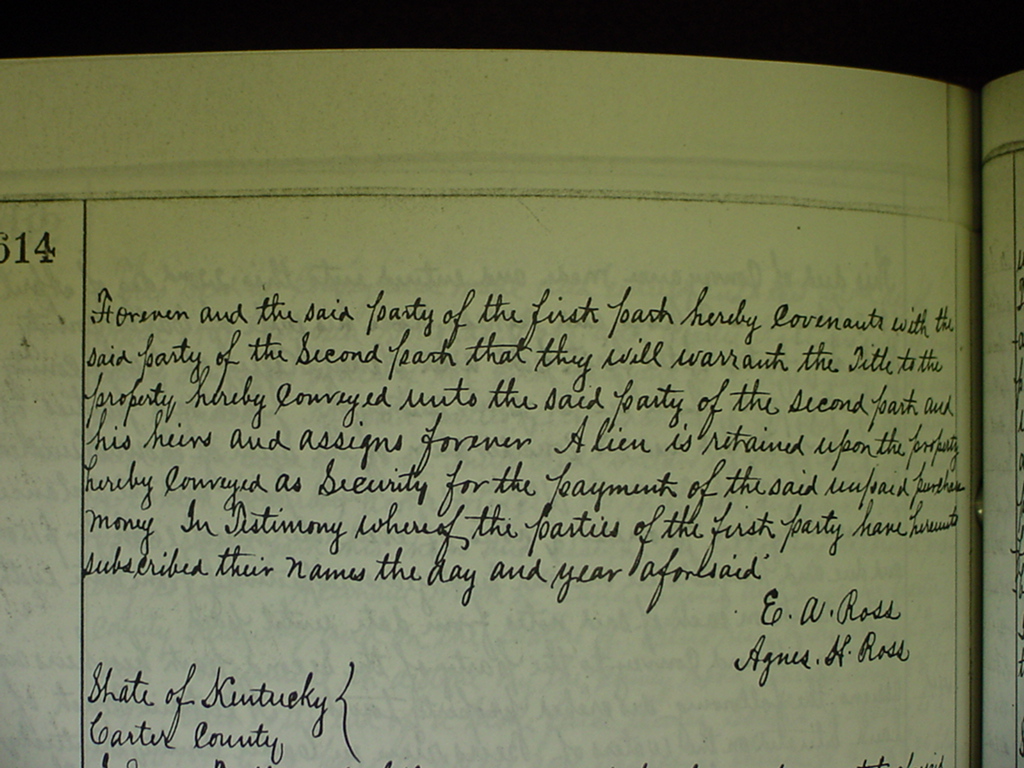 614
Forever and the said party of the first part hereby Covenants with the
said party of the Second part that they will warrant the Title to the
property hereby Conveyed unto the said party of the second part and
his heirs and assigns forever A lien is retained upon the property
hereby Conveyed as Security for the payment of the said unpaid purchase
money In Testimony whereof the parties of the first party have hereunto
subscribed their names the day and year aforesaid
E. W. Ross
Agnes. H. Ross
State of Kentucky
Carter County